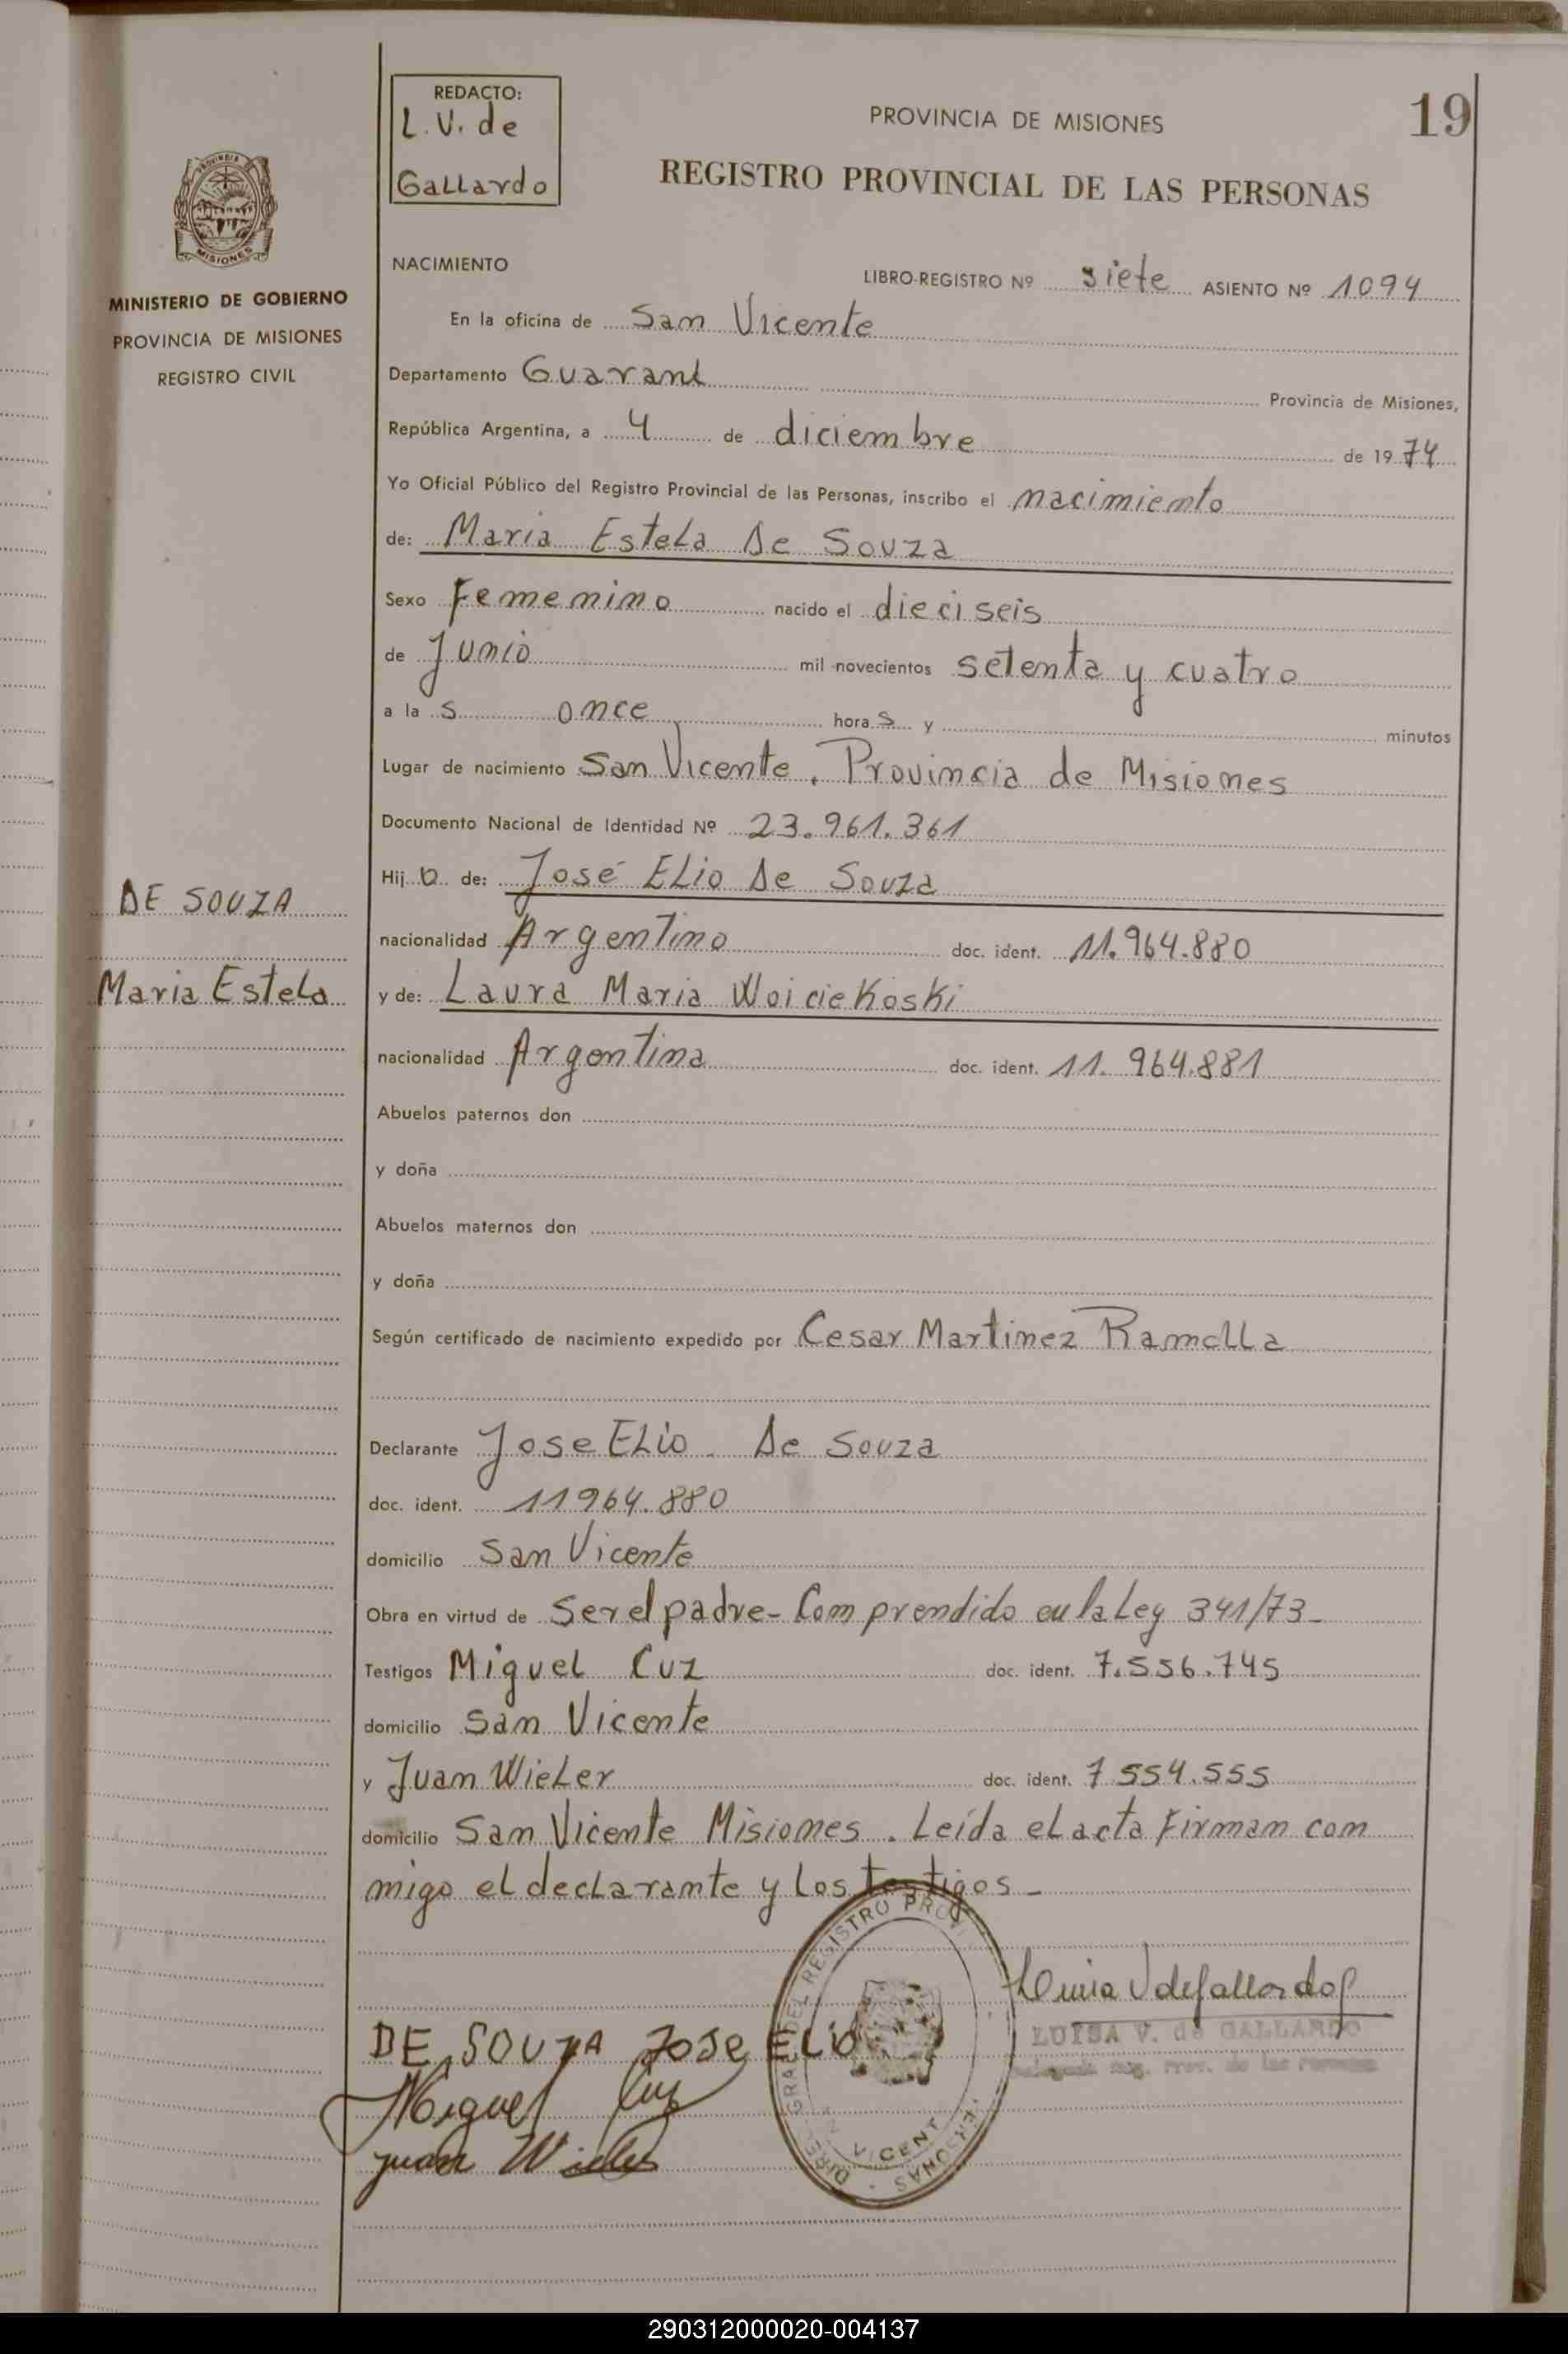 REDACTO:
L. V. de
Gallardo
PROVINCIA DE MISIONES
19
REGISTRO PROVINCIAL DE LAS PERSONAS
PROVINCIA DE
MISIONES
MINISTERIO DE GOBIERNO
PROVINCIA DE MISIONES
REGISTRO CIVIL
NACIMIENTO
LIBRO-REGISTRO Nº siete ASIENTO Nº 1094
En la oficina de San Vicente
Departamento Guaraní Provincia de Misiones,
República Argentina, a 4 de diciembre de 1974
Yo Oficial Público del Registro Provincial de las Personas, inscribo el nacimiento
de: Maria Estela De Souza
Sexo Femenino nacido el dieciseis
de Junio mil novecientos setenta y cuatro
a las once horas y minutos
Lugar de nacimiento San Vicente, Provincia de Misiones
Documento Nacional de Identidad Nº 23.961.361
Hija de: José Elio De Souza
nacionalidad Argentino doc. ident. 11.964.880
y de: Laura Maria Woiciekoski
nacionalidad Argentina doc. ident. 11.964.881
DE SOUZA
Maria Estela
Abuelos paternos don
y doña
Abuelos maternos don
y doña
Según certificado de nacimiento expedido por Cesar Martinez Ramella
Declarante Jose Elio De Souza
doc. ident. 11964.880
domicilio San Vicente
Obra en virtud de Ser el padre- Comprendido en la Ley 341/73-
Testigos Miguel Cuz doc. ident. 7.556.745
domicilio San Vicente
y Juan Wieler doc. ident. 7 554.555
domicilio San Vicente Misiones. Leída el acta Firman con
migo el declarante y los testigos-
Luisa V de Gallardo
LUISA V. de GALLARDO
DE SOUZA JOSE ELIO
Miguel Cuz
Juan Wieler
290312000020-004137